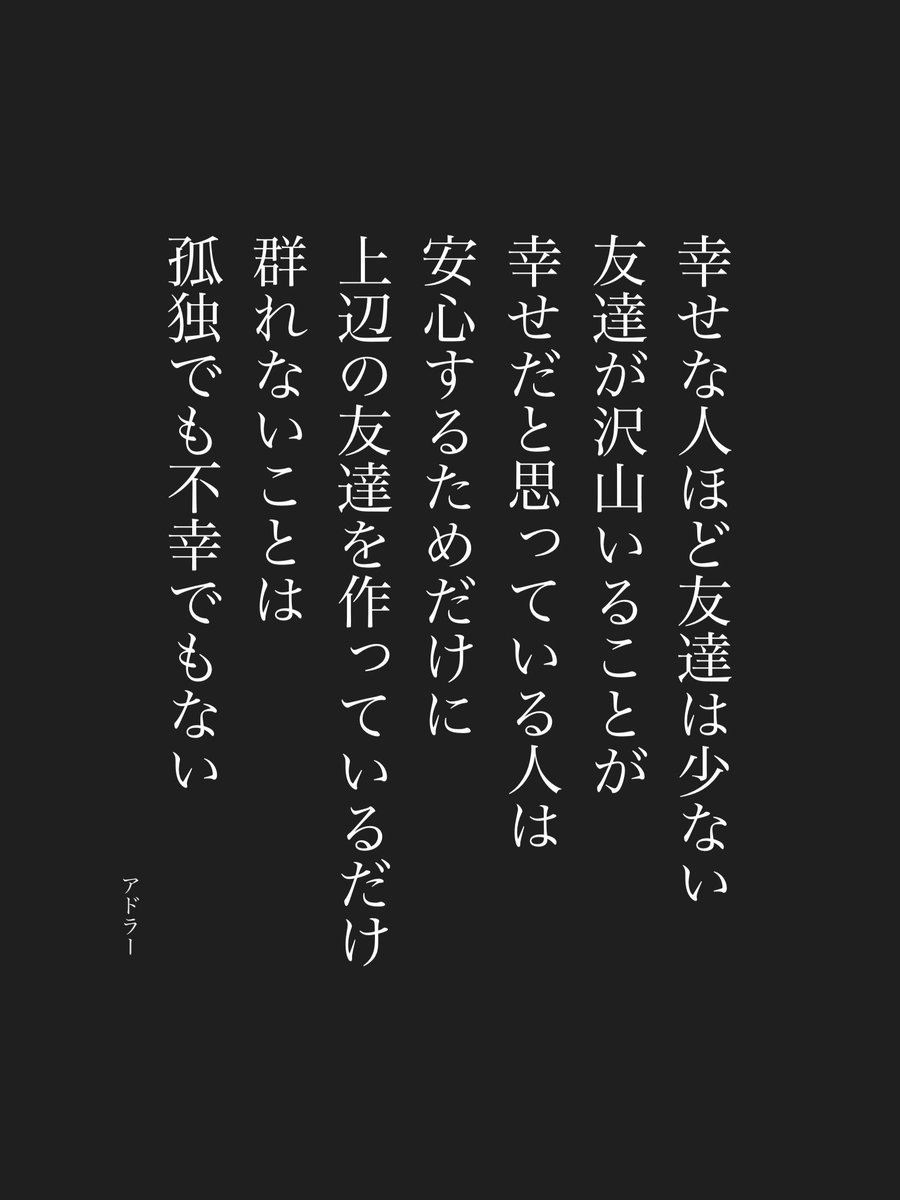 幸せな人ほど友達は少ない
友達が沢山いることが
幸せだと思っている人は
安心するためだけに
上辺の友達を作っているだけ
群れないことは
孤独でも不幸でもない
アドラー